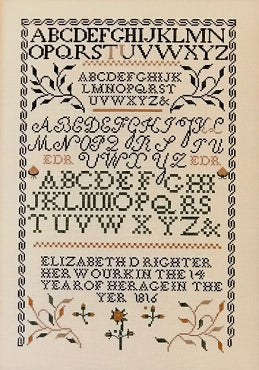 ABCDEFGHIJKLMN
OPQRSTUVWXYZ
ABCDEFGHIJK
LMNOPQRST
UVWXYZ&
ABCDEFGHIJKL
MNOPQRSTU
EDR VWXYZ EDR
ABCDEFGHI
JKLMNOPQRS
TUVWXYZ&
ELIZABETH D RIGHTER
HER WOURK IN THE 14
YEAR OF HER AGE IN THE
YER 1816